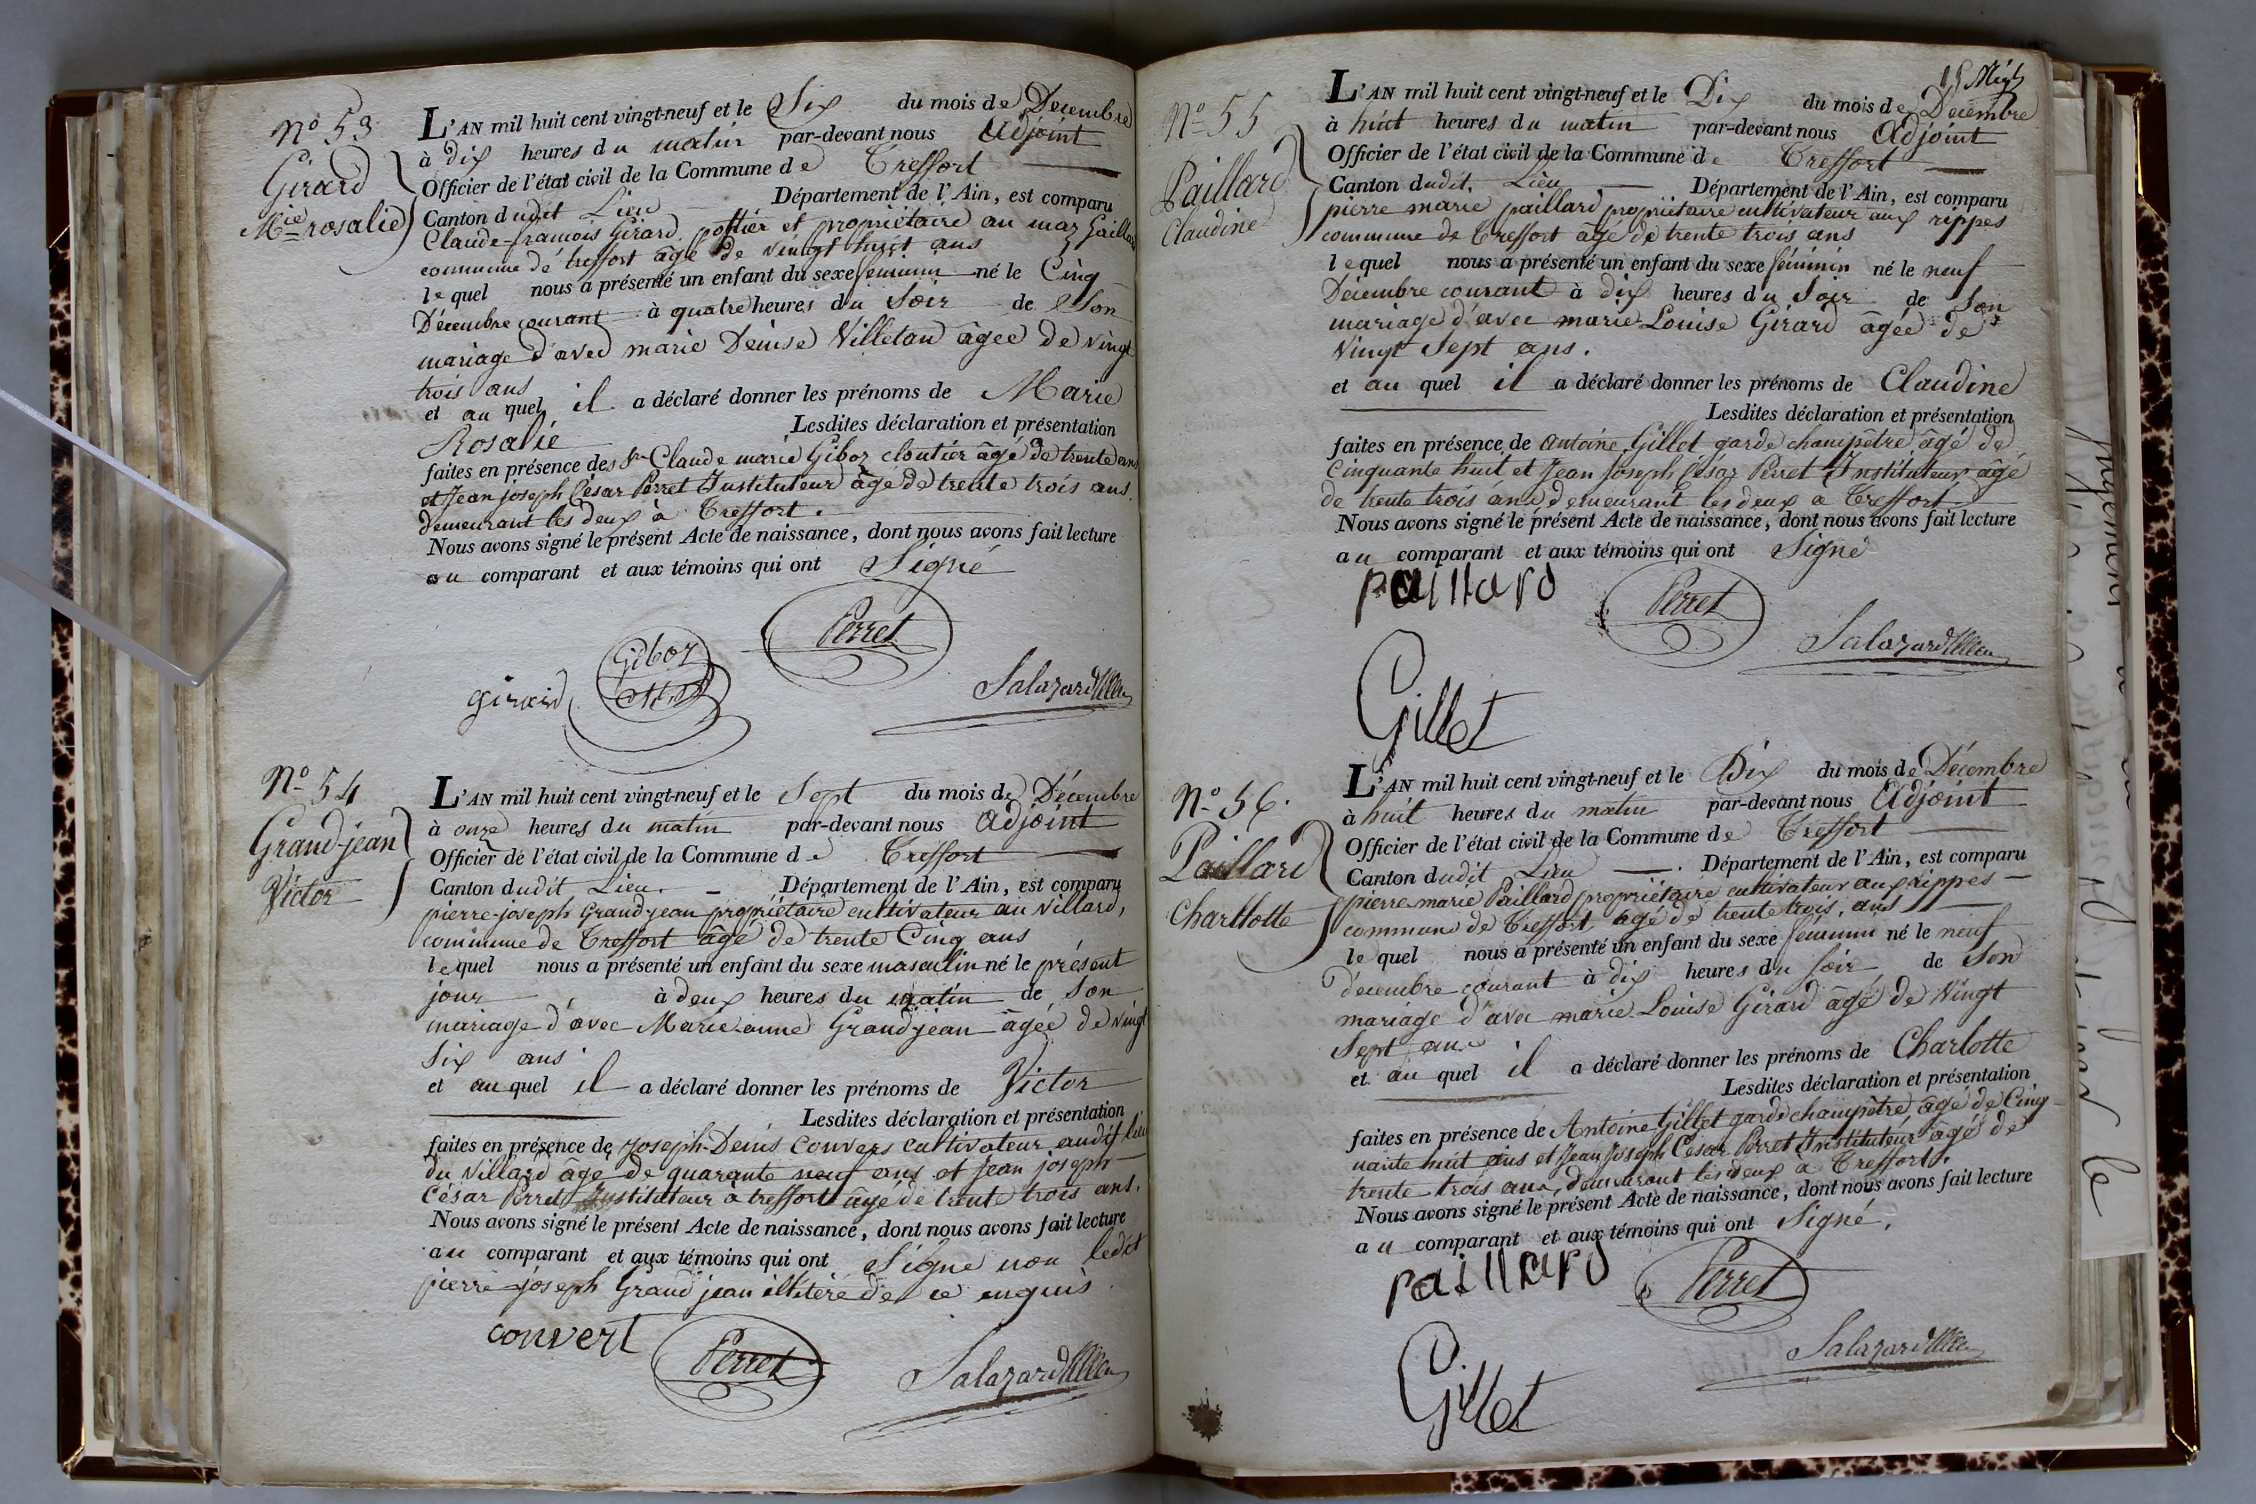 No 53
Girard
Mie rosalie
L'AN mil huit cent vingt-neuf et le Six du mois de Decembre
à dix heures du matin par-devant nous Adjoint
Officier de l'état civil de la Commune de Treffort
Canton dudit Lieu Département de l'Ain, est comparu
Claude-francois Girard pottier et propriétaire au maz Gaillard
commune de treffort âgé de vingt huit ans
lequel nous a présenté un enfant du sexe féminin né le Cinq
Décembre courant à quatre heures du Soir de Son
mariage d'avec marie Denise Villetan âgée de vingt
trois ans
et au quel il a déclaré donner les prénoms de Marie
Rosalie Lesdites déclaration et présentation
faites en présence des Srs Claude marie Giboz cloutier âgé de trente ans
et Jean joseph César Perret Instituteur âgé de trente trois ans.
demeurant les deux à Treffort.
Nous avons signé le présent Acte de naissance, dont nous avons fait lecture
au comparant et aux témoins qui ont Signé
Perret
Giboz
girard
Salazard
No 54
Grand-jean
Victor
L'AN mil huit cent vingt-neuf et le Sept du mois de Décembre
à onze heures du matin par-devant nous Adjoint
Officier de l'état civil de la Commune de Treffort
Canton dudit Lieu. Département de l'Ain, est comparu
pierre-joseph Grand-jean propriétaire cultivateur au villard,
commune de Treffort âgé de trente Cinq ans
lequel nous a présenté un enfant du sexe masculin né le présent
jour à deux heures du matin de Son
mariage d'avec Marie-anne Grandjean âgée de vingt
Six ans
et au quel il a déclaré donner les prénoms de Victor
Lesdites déclaration et présentation
faites en présence de Joseph-Denis Convers cultivateur audit lieu
du villard âgé de quarante neuf ans et Jean joseph
César Perret Instituteur à treffort âgé de trente trois ans.
Nous avons signé le présent Acte de naissance, dont nous avons fait lecture
au comparant et aux témoins qui ont Signé non ledit
pierre-joseph Grand jean illitéré de ce enquis
convert
Perret
Salazard
No 55
Paillard
Claudine
L'AN mil huit cent vingt-neuf et le Dix du mois de Décembre
à huit heures du matin par-devant nous Adjoint
Officier de l'état civil de la Commune de Treffort
Canton dudit Lieu Département de l'Ain, est comparu
pierre marie paillard propriétaire cultivateur aux rippes
commune de Treffort âgé de trente trois ans
lequel nous a présenté un enfant du sexe féminin né le neuf
Décembre courant à dix heures du Soir de Son
mariage d'avec marie-Louise Girard âgée de
Vingt Sept ans.
et au quel il a déclaré donner les prénoms de Claudine
Lesdites déclaration et présentation
faites en présence de antoine Gillet garde champêtre âgé de
Cinquante huit et Jean Joseph César Perret Instituteur âgé
de trente trois ans demeurant les deux à Treffort
Nous avons signé le présent Acte de naissance, dont nous avons fait lecture
au comparant et aux témoins qui ont Signé
paillard
Perret
Salazard
Gillet
No 56.
Paillard
Charllotte
L'AN mil huit cent vingt-neuf et le Dix du mois de Décembre
à huit heures du matin par-devant nous Adjoint
Officier de l'état civil de la Commune de Treffort
Canton dudit Lieu . Département de l'Ain, est comparu
pierre marie Paillard propriétaire cultivateur aux rippes
commune de Treffort âgé de trente trois, ans
lequel nous a présenté un enfant du sexe féminin né le neuf
décembre courant à dix heures du soir de Son
mariage d'avec marie Louise Girard âgé de Vingt
Sept ans
et au quel il a déclaré donner les prénoms de Charlotte
Lesdites déclaration et présentation
faites en présence de Antoine Gillet garde champêtre âgé de Cinq-
uante huit ans et Jean Joseph César Perret Instituteur âgé de
trente trois ans, demeurant les deux à Treffort.
Nous avons signé le présent Acte de naissance, dont nous avons fait lecture
au comparant et aux témoins qui ont Signé,
paillard
Perret
Salazard
Gillet